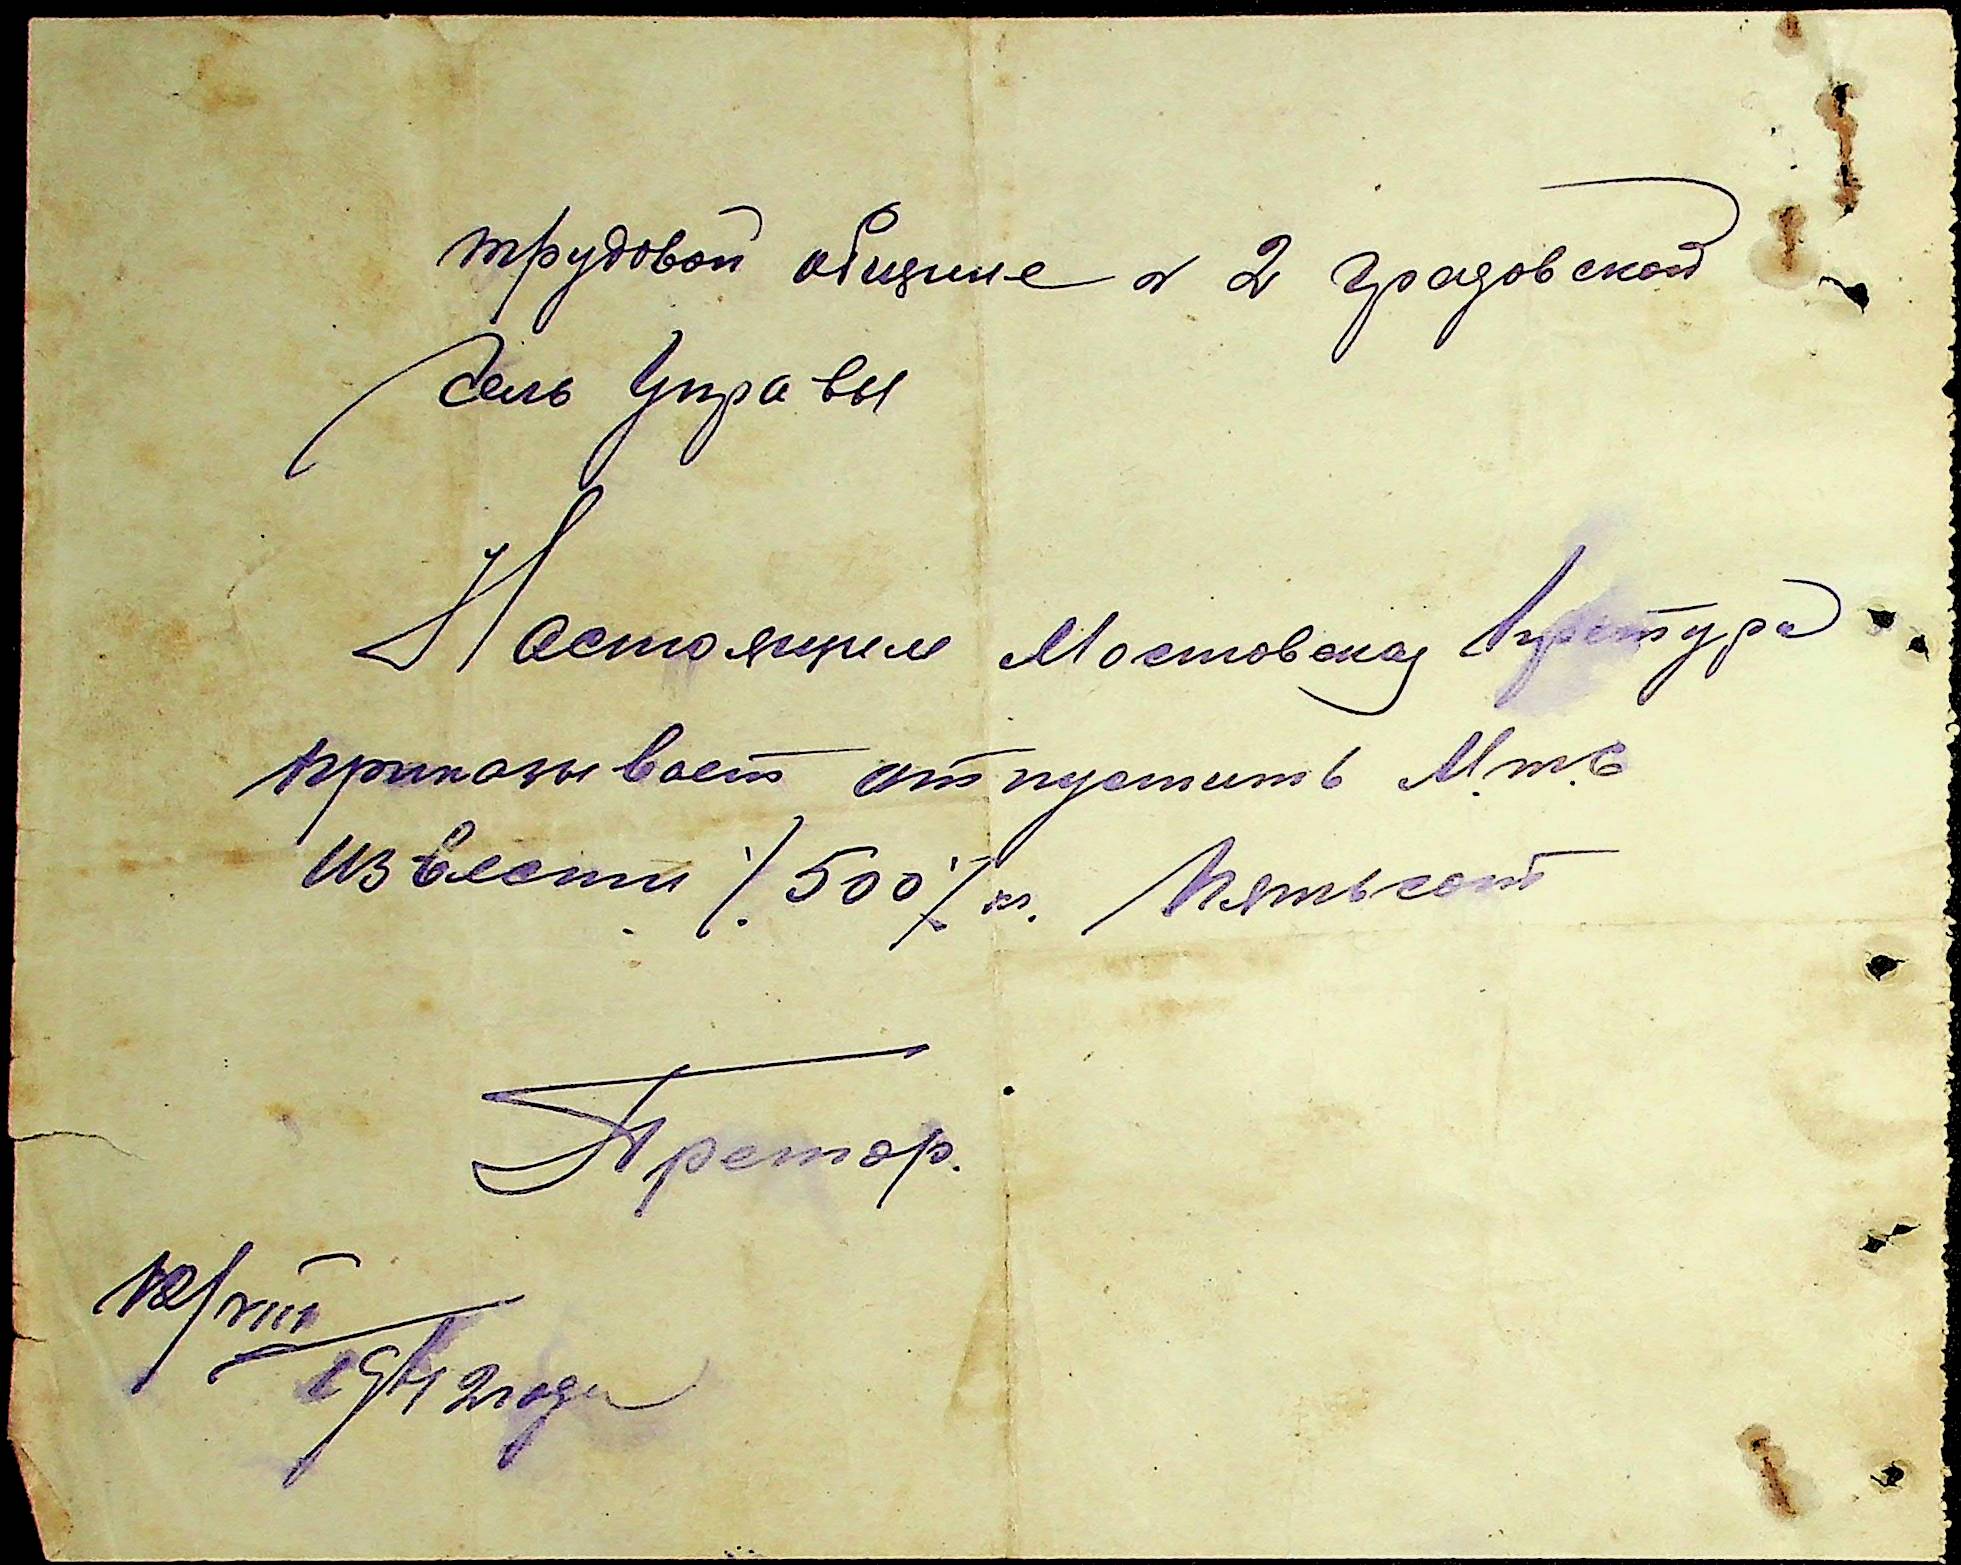 трудовой общине № 2 Градовской
Сель Управы
Настоящем Мостовская Претура
приказывает отпустить М.т.с
извести ./. 500 ./. кг. Пятьсот
Претор.
VIII
1942 года